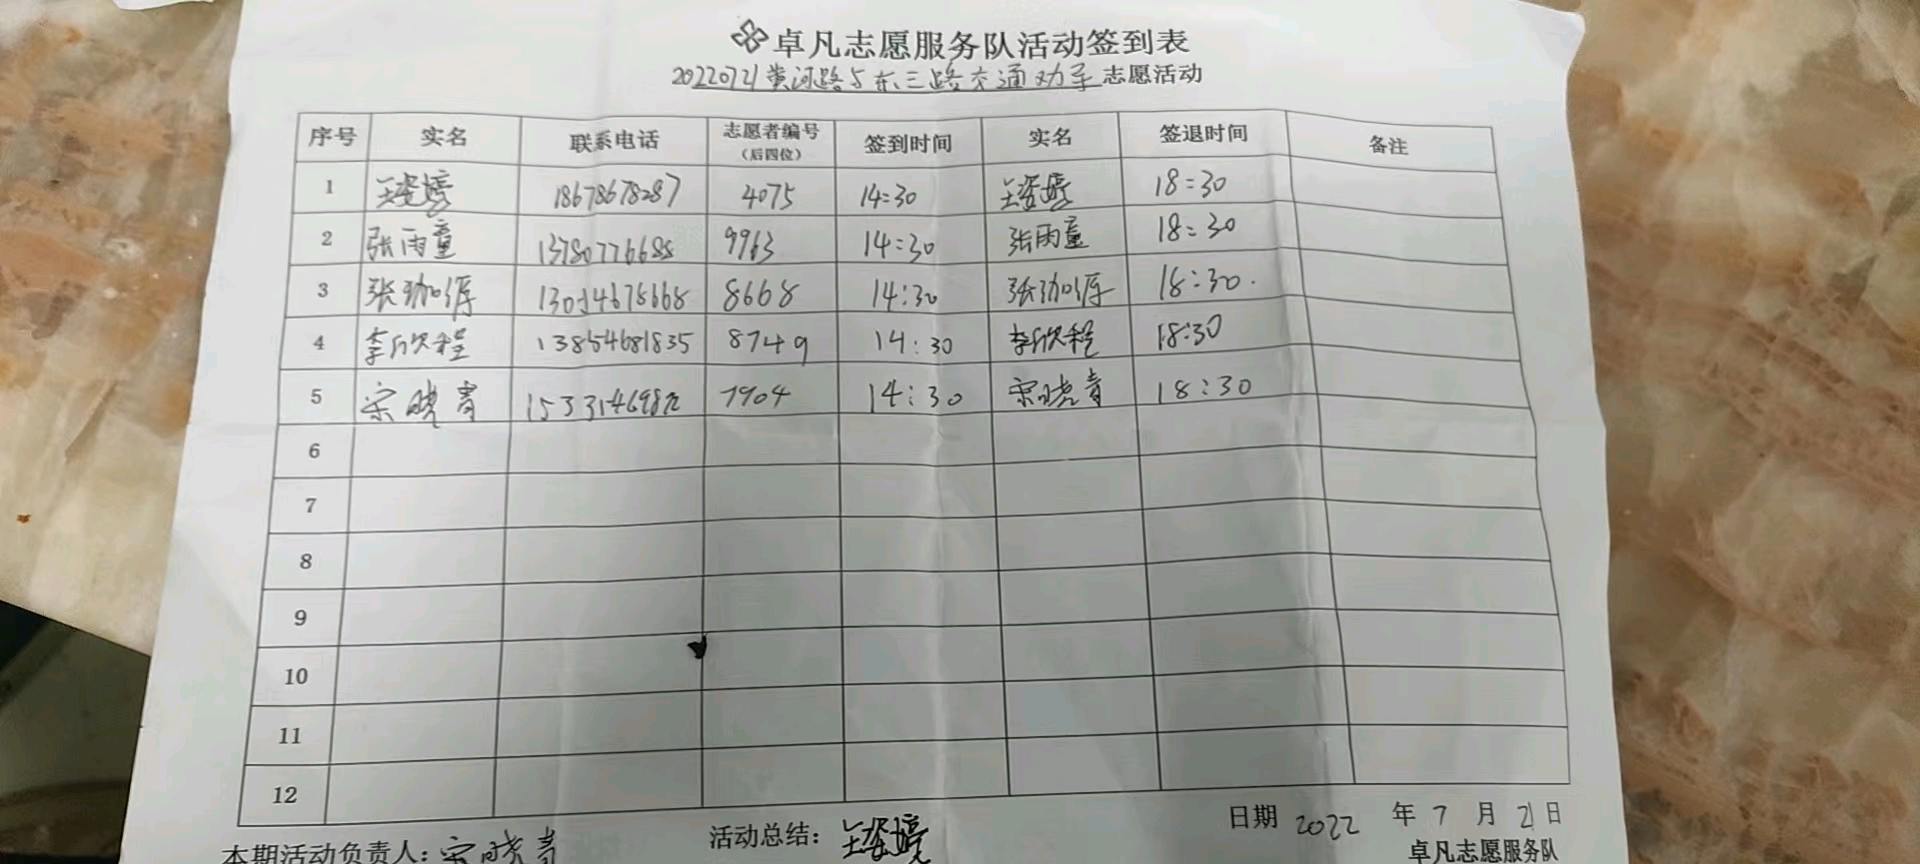 卓凡志愿服务队活动签到表
20220721黄河路与东三路交通劝导志愿活动
序号 实名 联系电话 志愿者编号（后四位） 签到时间 实名 签退时间 备注
1 王姿婷 18678678287 4075 14:30 王姿婷 18:30
2 张雨童 13780776688 9963 14:30 张雨童 18:30
3 张珈源 8668 14:30 张珈源 18:30.
4 李欣程 13854681835 8749 14:30 李欣程 18:30
5 宋晓青 7904 14:30 宋晓青 18:30
6
7
8
9
10
11
12
本期活动负责人：宋晓青 活动总结：王姿婷 日期 2022 年 7 月 21 日
卓凡志愿服务队